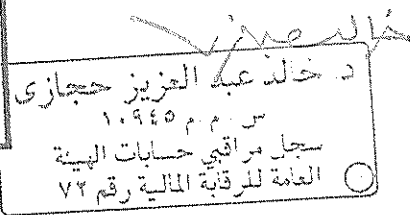 خالد حجازى
د. خالد عبد العزيز حجازى
س. م. م ١٠٩٤٥
سجل مراقبي حسابات الهيئة
العامة للرقابة المالية رقم ٧٢